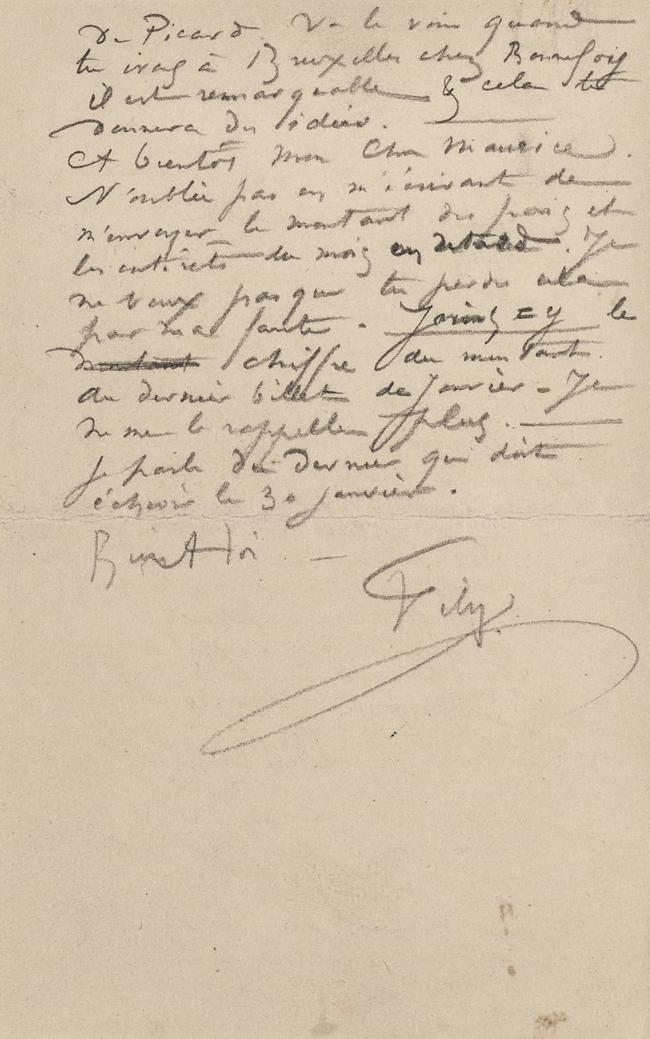 de Picard. Va le voir quand
tu iras à Bruxelles chez Bonnefoiy
il est remarquable & cela te
donnera des idées.
A bientôt mon cher Maurice.
N'oublie pas en m'écrivant de
m'envoyer le montant des frais et
les intérêts du mois en retard. Je
ne veux pas que tu perdes cela
par ma faute. Joins=y le
montant chiffre du montant
du dernier billet de Janvier - Je
ne me le rappelle plus.
Je parle du dernier qui doit
échoir le 30 janvier.
Bien A toi —
Fély